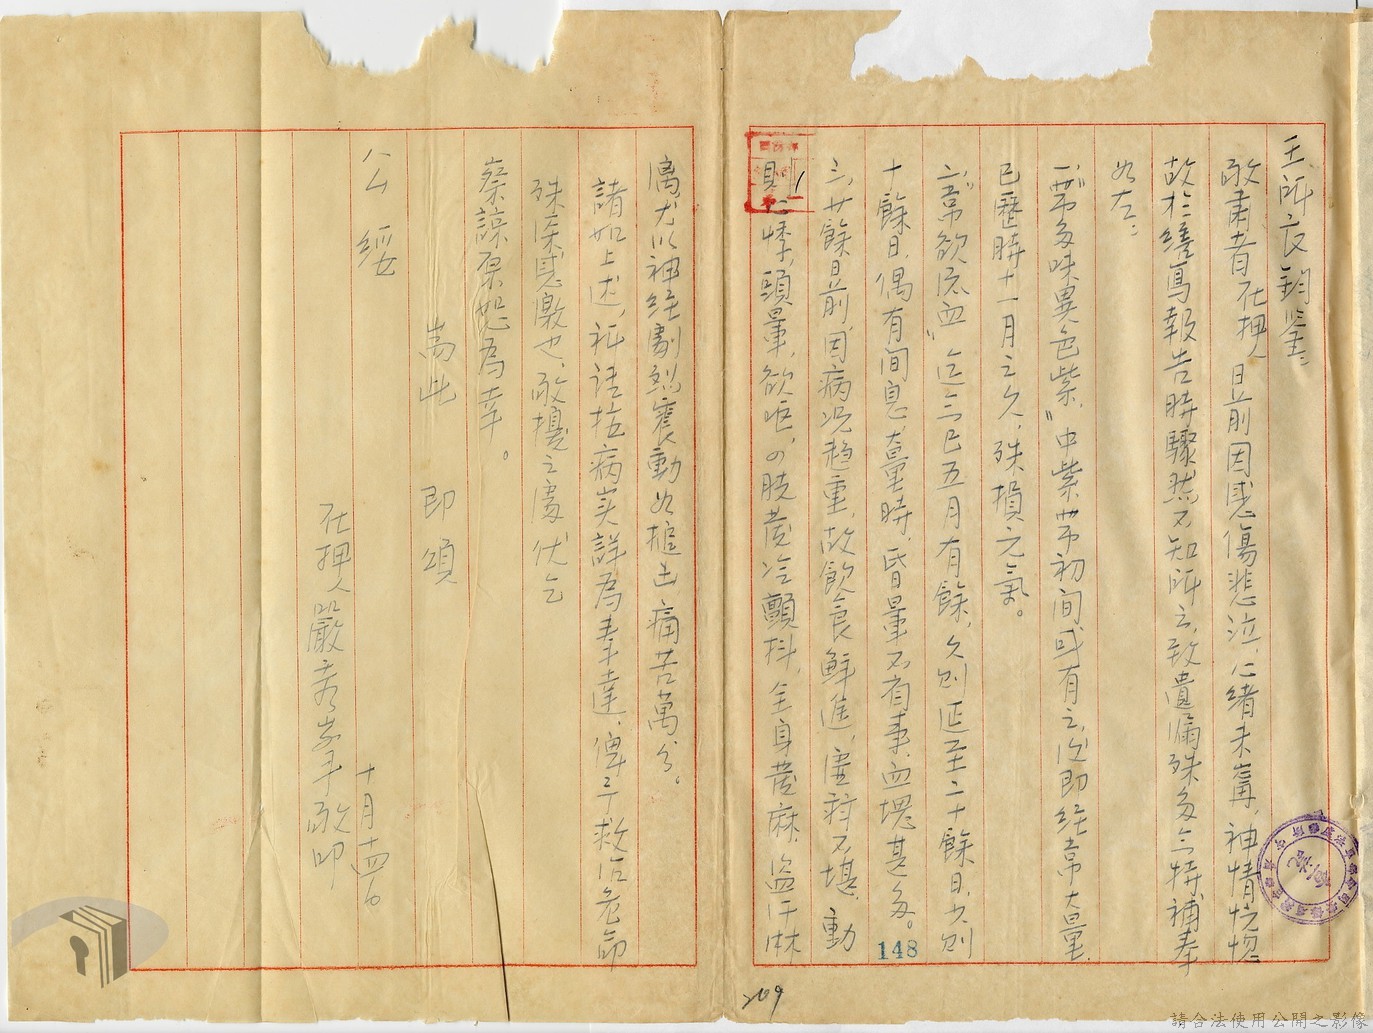 王所長鈞鑒：
敬肅者在押人日前因感傷悲泣，心緒未甯，神情恍惚
故於繕寫報告時驟然不知所云，致遺漏殊多，今特補奉
如左：
一、帶多味異色紫，中紫帶初間或有之，後即經常大量，
已歷時十一月之久，殊損元氣。
二、常欲流血，迄今已五月有餘，久則延至二十餘日，少則
十餘日，偶有间息，大量時，昏暈不省事，血塊甚多。
三、廿餘日前，因病况趋重，故飲食鮮進，虛弱不堪，動
則心悸，頭暈，欲嘔，四肢發冷顫抖，全身發麻，盜汗淋
漓，尤以神經劇烈震動如搥击，痛苦萬分。
諸如上述，祈詰抗病实詳為奉達，俾予救治危命
殊深感激也，敬擾之處，伏乞
察諒原恕為幸。
耑此 即頌
公綏
在押人嚴秀峯敬叩
十月十四日
148
209
請合法使用公開之影像